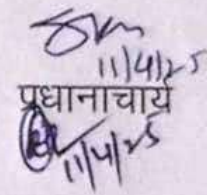 11/4/25
प्रधानाचार्य
11/4/25